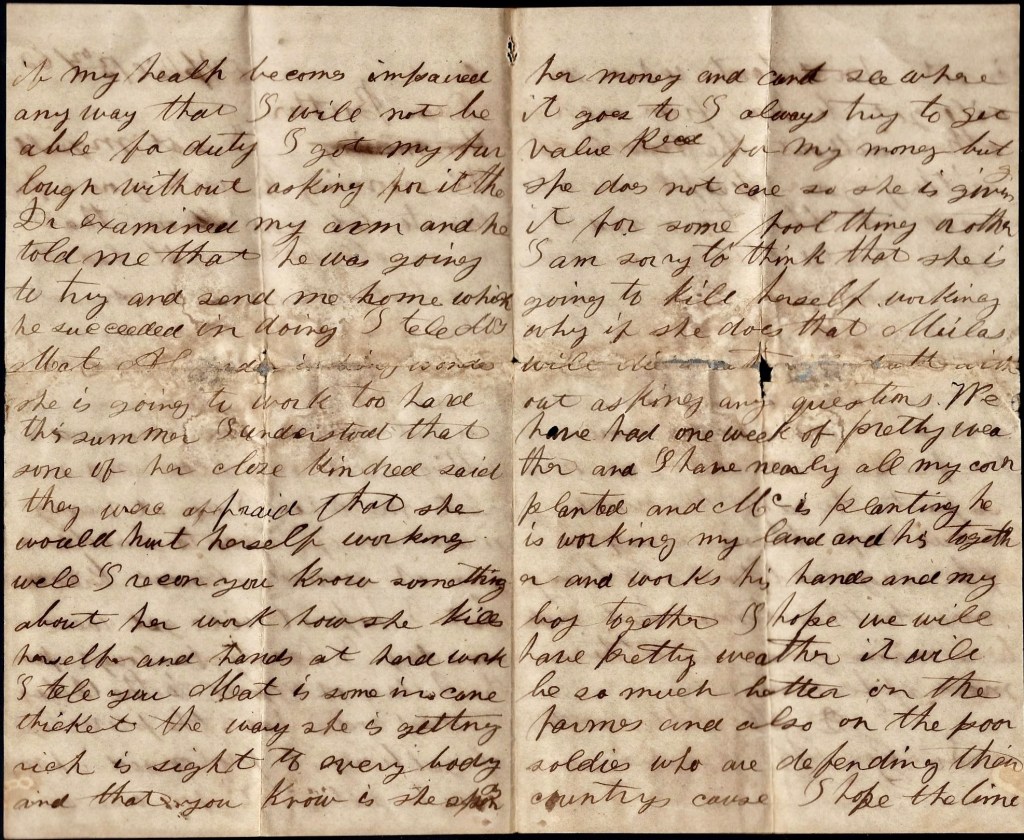 if my health becomes impaired
any way that I will not be
able fo duty I got my fur
lough without asking for it the
Dr examined my arm and he
told me that he was going
to try and send me home which
he succeeded in doing I tele
Mat
she is going to work too hard
this summer I understood that
some of her close kindred said
they were affraid that she
would hurt herself working
wele I recon you know something
about her work how she kills
herself and hands at hard work
I tele you Mat is some in cane
thicket the way she is getting
rich is sight to every body
and that you know is she
her money and cant see where
it goes to I always try to get
value Recd for my money but
she does not care so she is given
it for some fool thing or other
I am sorry to think that she is
going to kill herself working
why if she does that
will with
out asking any questions. We
have had one week of pretty wea
ther and I have nearly all my corn
planted and Mc is planting he
is working my land and his togeth
er and works his hands and my
boy together I hope we will
have pretty weather it will
be so much better on the
farmes and also on the poor
soldies who are defending their
countrys cause I hope the time